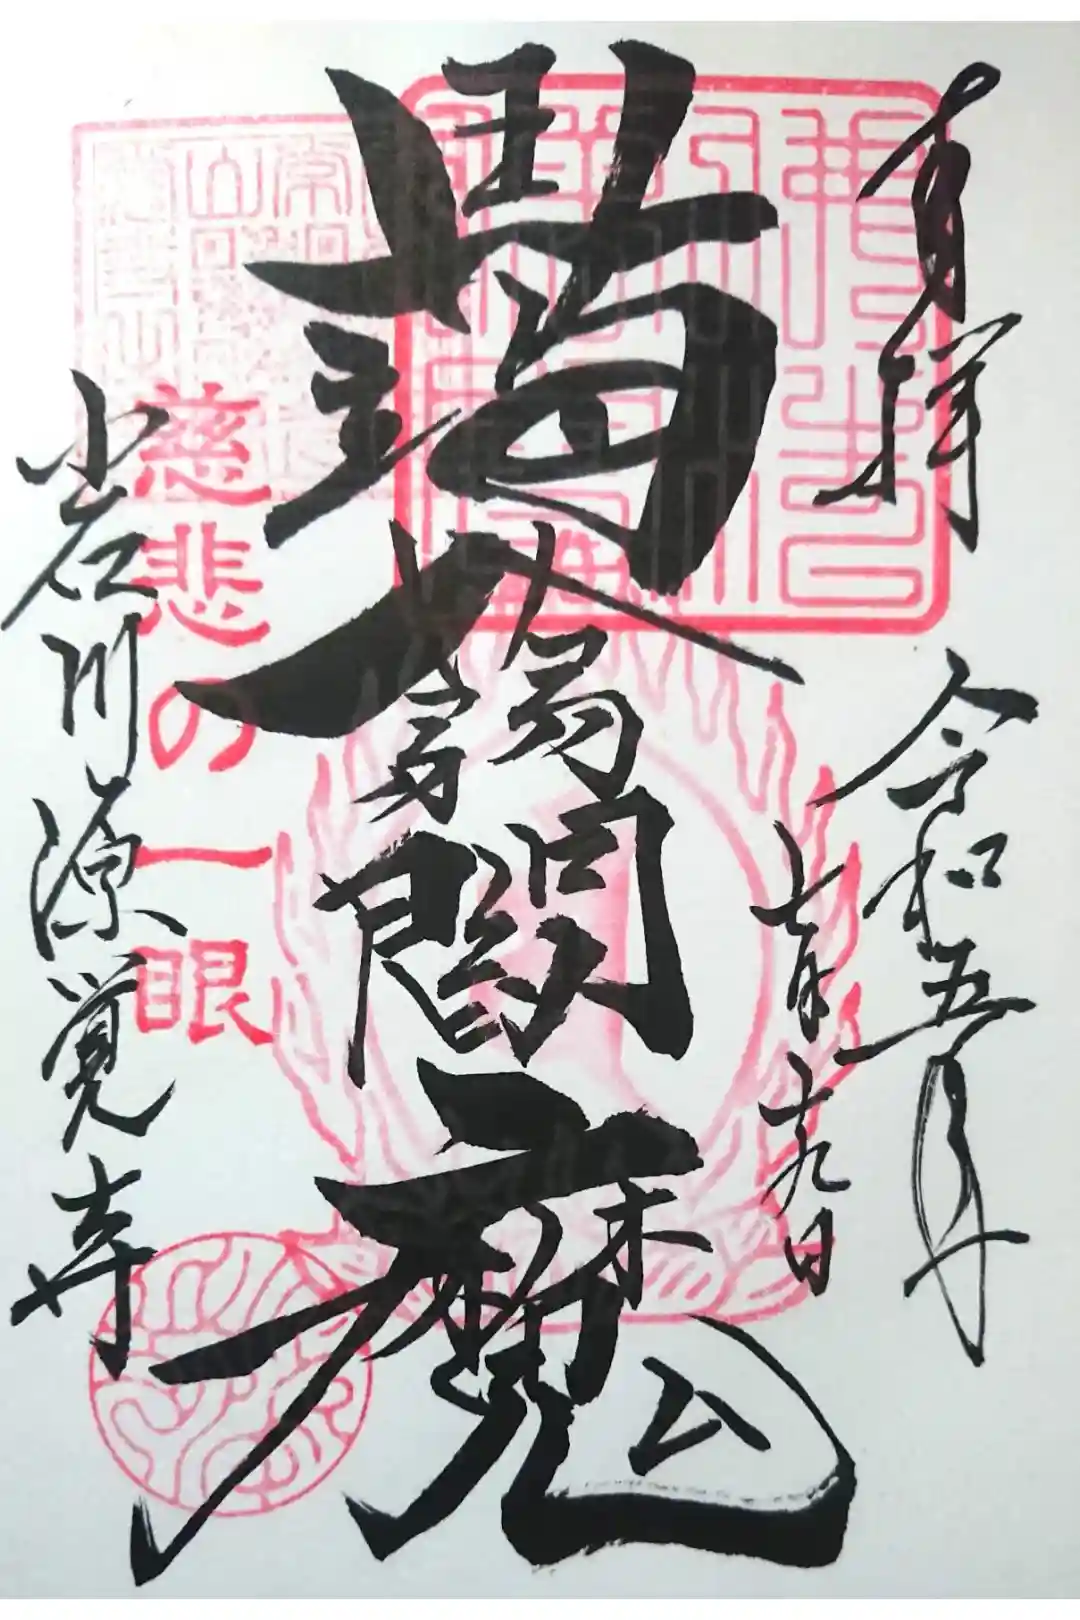 奉拝
令和五年
七月十九日
蒟蒻閻魔
慈悲の一眼
小石川源覚寺